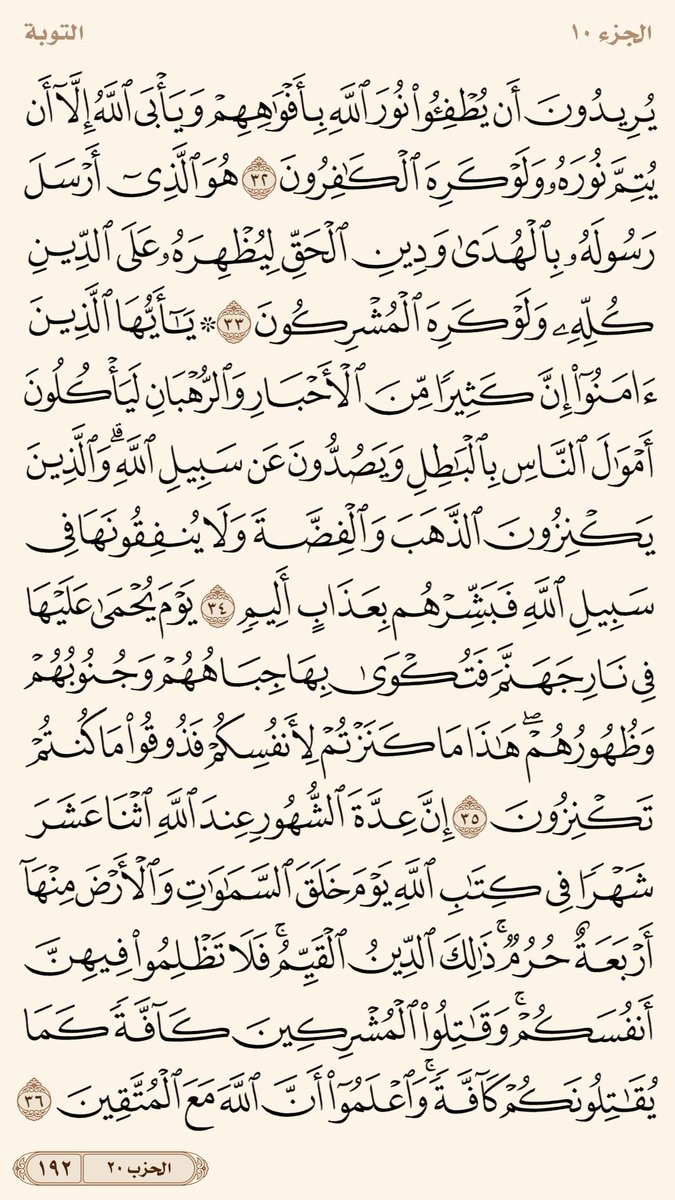 الجزء ١٠
التوبة
يُرِيدُونَ أَن يُطْفِـُٔوا۟ نُورَ ٱللَّهِ بِأَفْوَٰهِهِمْ وَيَأْبَى ٱللَّهُ إِلَّآ أَن
يُتِمَّ نُورَهُۥ وَلَوْ كَرِهَ ٱلْكَٰفِرُونَ ٣٢ هُوَ ٱلَّذِىٓ أَرْسَلَ
رَسُولَهُۥ بِٱلْهُدَىٰ وَدِينِ ٱلْحَقِّ لِيُظْهِرَهُۥ عَلَى ٱلدِّينِ
كُلِّهِۦ وَلَوْ كَرِهَ ٱلْمُشْرِكُونَ ٣٣ ۞ يَٰٓأَيُّهَا ٱلَّذِينَ
ءَامَنُوٓا۟ إِنَّ كَثِيرًا مِّنَ ٱلْأَحْبَارِ وَٱلرُّهْبَانِ لَيَأْكُلُونَ
أَمْوَٰلَ ٱلنَّاسِ بِٱلْبَٰطِلِ وَيَصُدُّونَ عَن سَبِيلِ ٱللَّهِ ۗ وَٱلَّذِينَ
يَكْنِزُونَ ٱلذَّهَبَ وَٱلْفِضَّةَ وَلَا يُنفِقُونَهَا فِى
سَبِيلِ ٱللَّهِ فَبَشِّرْهُم بِعَذَابٍ أَلِيمٍ ٣٤ يَوْمَ يُحْمَىٰ عَلَيْهَا
فِى نَارِ جَهَنَّمَ فَتُكْوَىٰ بِهَا جِبَاهُهُمْ وَجُنُوبُهُمْ
وَظُهُورُهُمْ ۖ هَٰذَا مَا كَنَزْتُمْ لِأَنفُسِكُمْ فَذُوقُوا۟ مَا كُنتُمْ
تَكْنِزُونَ ٣٥ إِنَّ عِدَّةَ ٱلشُّهُورِ عِندَ ٱللَّهِ ٱثْنَا عَشَرَ
شَهْرًا فِى كِتَٰبِ ٱللَّهِ يَوْمَ خَلَقَ ٱلسَّمَٰوَٰتِ وَٱلْأَرْضَ مِنْهَآ
أَرْبَعَةٌ حُرُمٌ ۚ ذَٰلِكَ ٱلدِّينُ ٱلْقَيِّمُ ۚ فَلَا تَظْلِمُوا۟ فِيهِنَّ
أَنفُسَكُمْ ۚ وَقَٰتِلُوا۟ ٱلْمُشْرِكِينَ كَآفَّةً كَمَا
يُقَٰتِلُونَكُمْ كَآفَّةً ۚ وَٱعْلَمُوٓا۟ أَنَّ ٱللَّهَ مَعَ ٱلْمُتَّقِينَ ٣٦
الحزب ٢٠
١٩٢